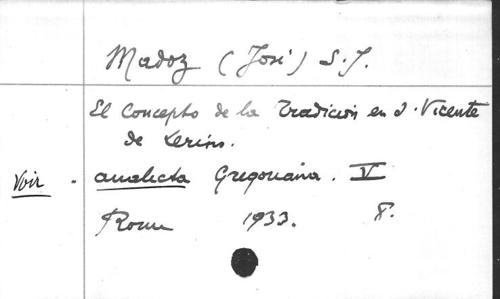 Madoz (José) S.J.
El Concepto de la Tradición en S. Vicente
de Lerins.
Voir . analecta Gregoriana. V
Rome 1933. 8.